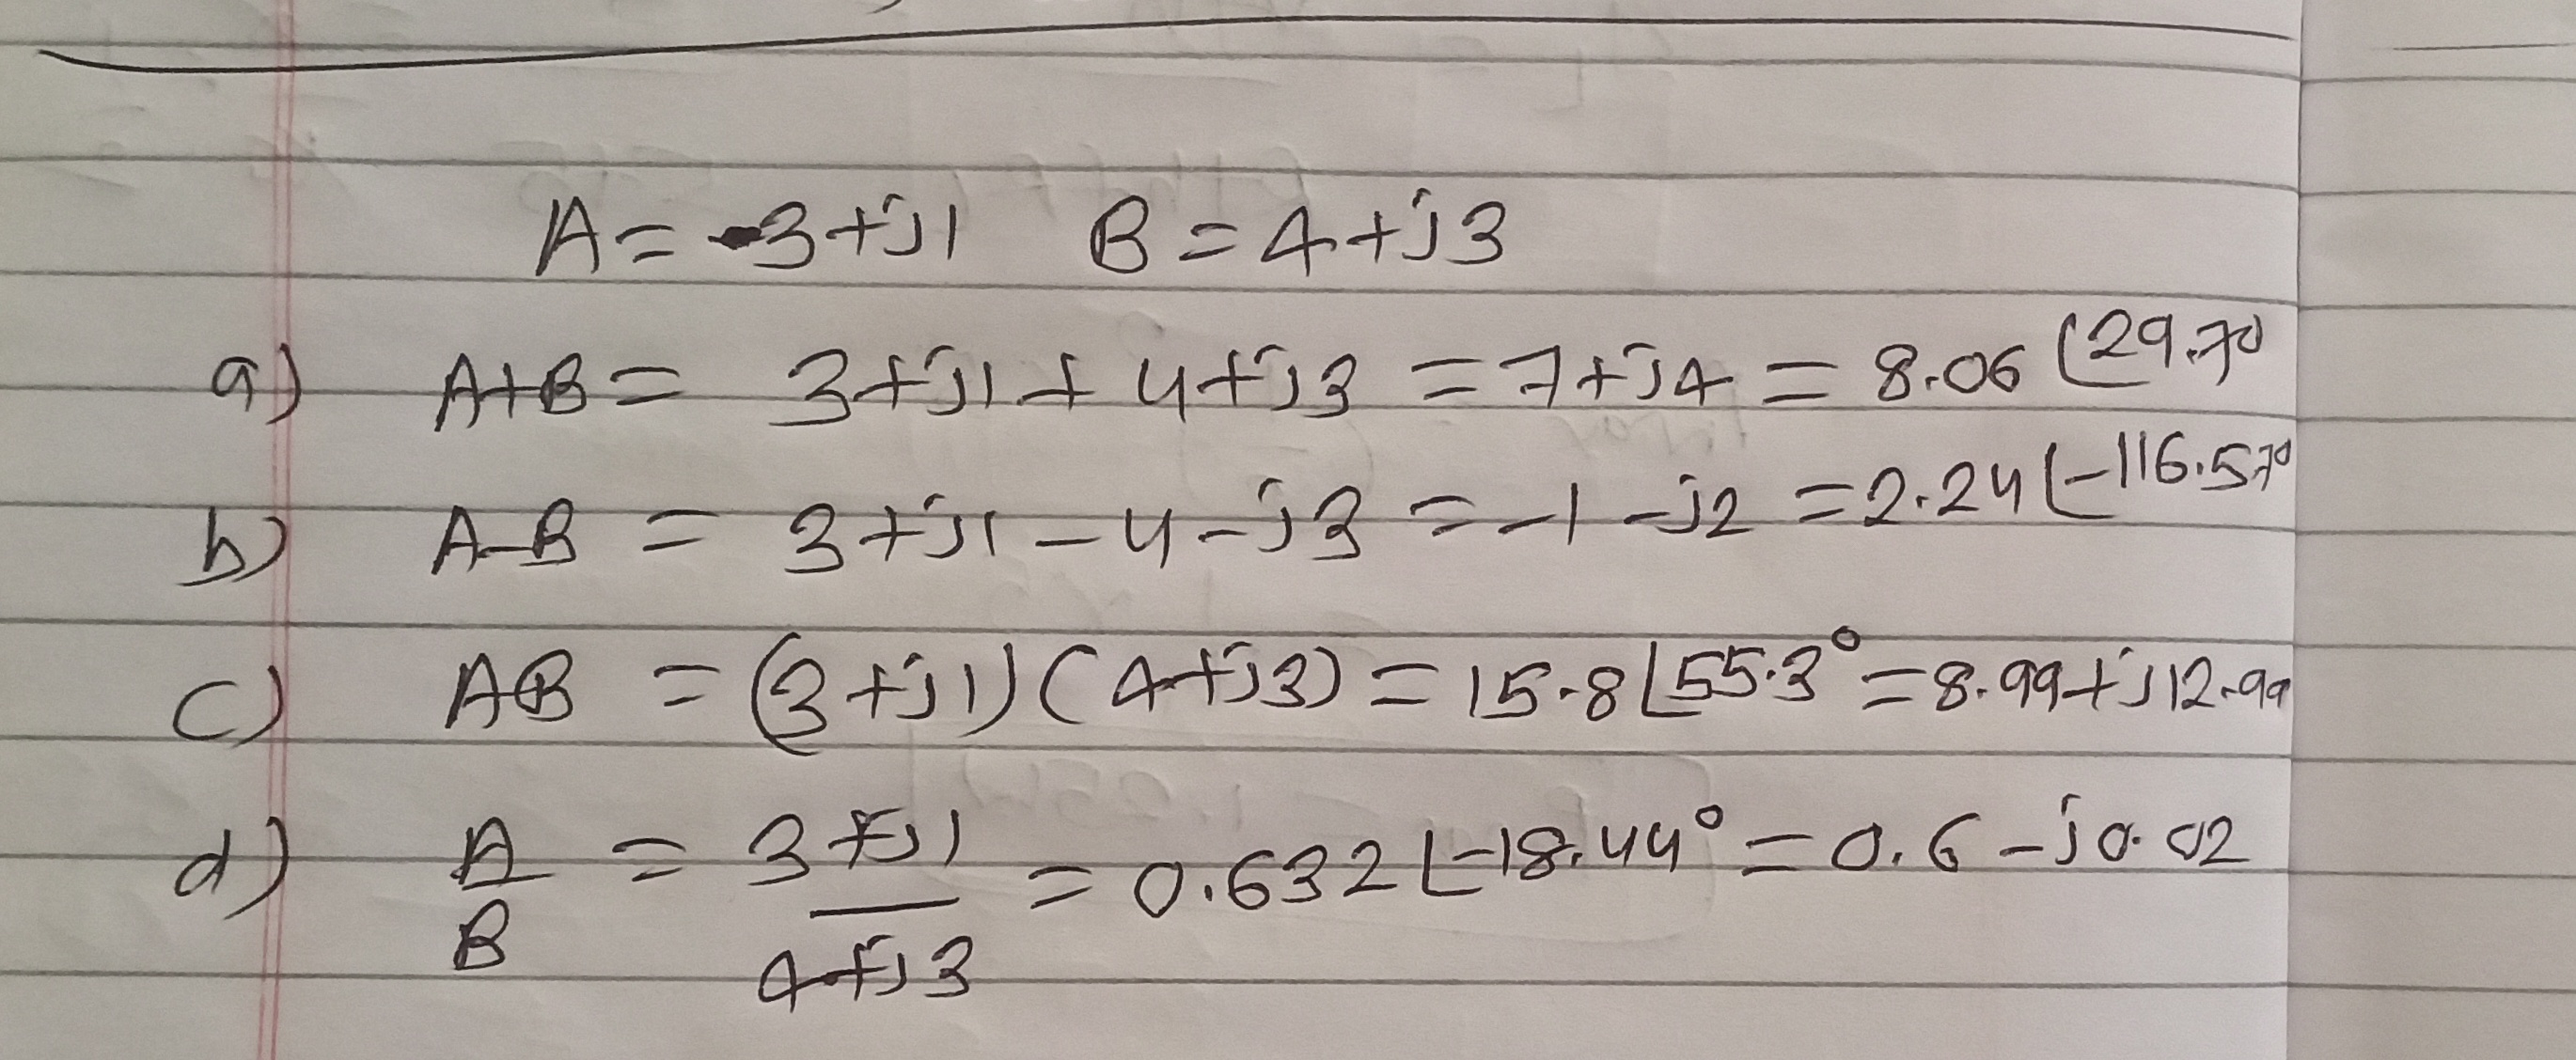 A = 3+j1 B = 4+j3
a) A+B = 3+j1+4+j3 = 7+j4 = 8.06∠29.7°
b) A-B = 3+j1-4-j3 = -1-j2 = 2.24∠-116.57°
c) AB = (3+j1)(4+j3) = 15.8∠55.3° = 8.99+j12.99
d) A/B = 3+j1/4+j3 = 0.632∠-18.44° = 0.6-j0.02